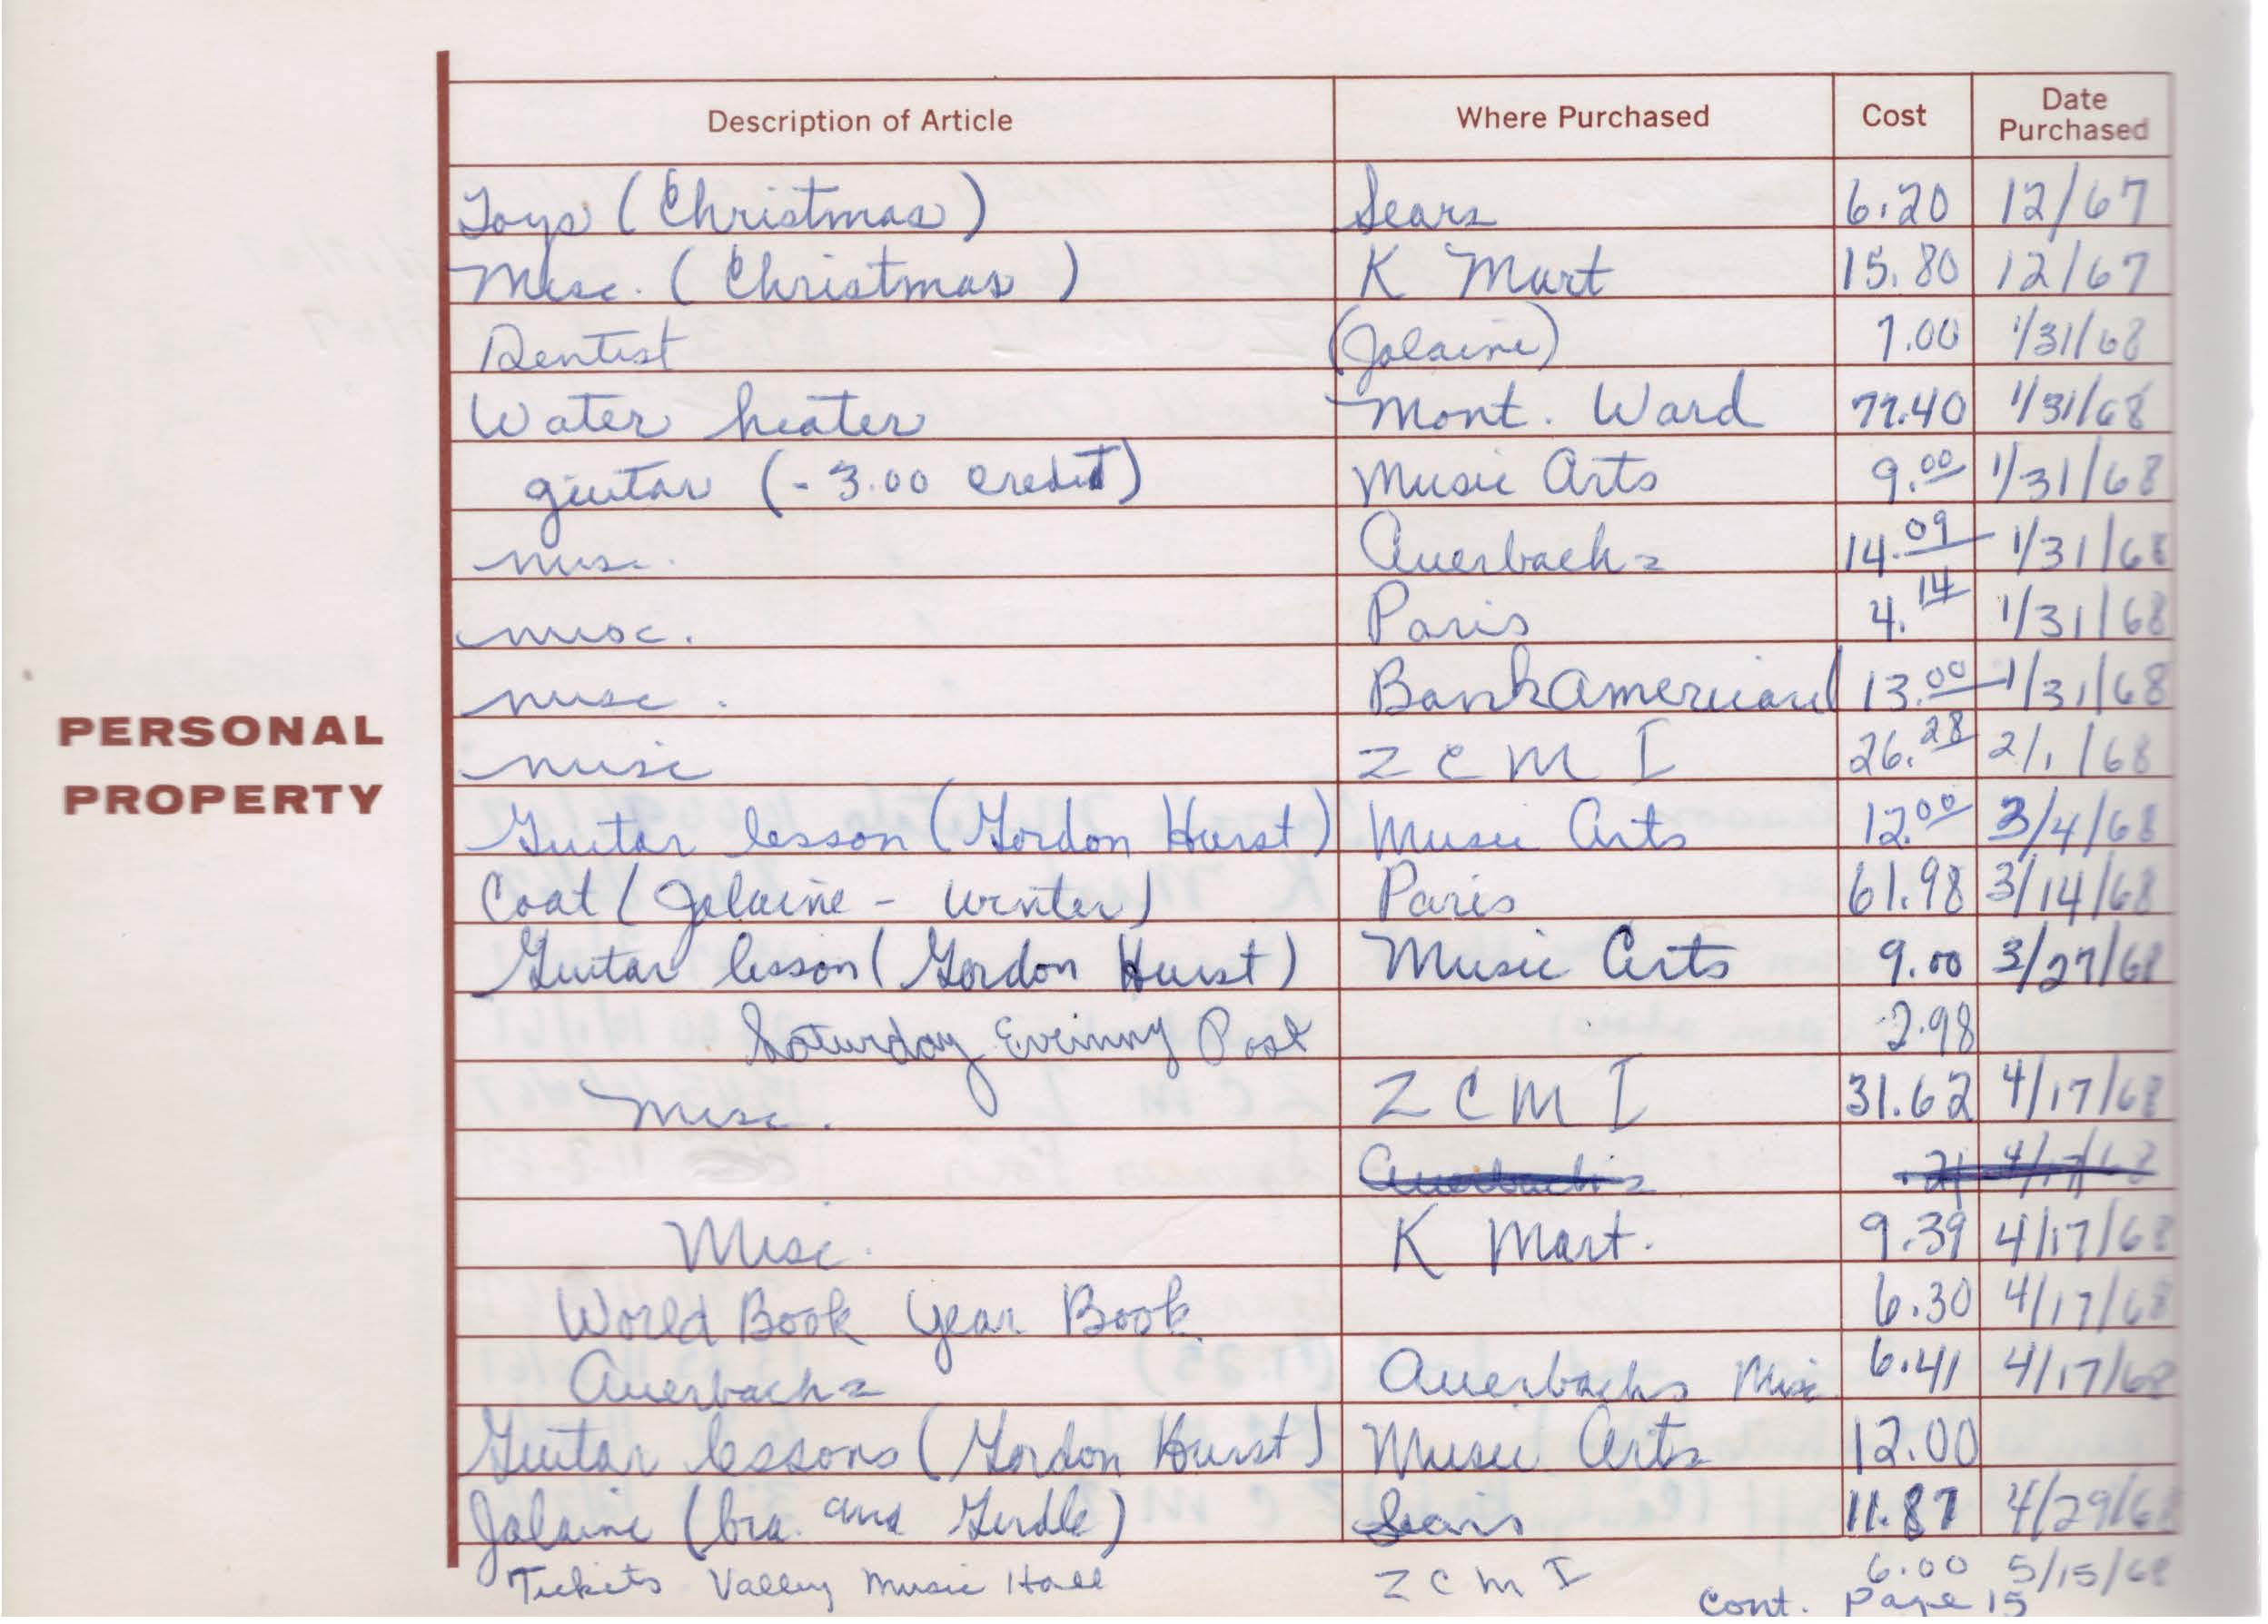 Description of Article Where Purchased Cost Date Purchased
Toys (Christmas) Sears 6.20 12/67
Misc. (Christmas) K Mart 15.80 12/67
Dentist (Jolaine) 7.00 1/31/68
Water heater Mont. Ward 77.40 1/31/68
guitar (-3.00 credit) Music Arts 9.00 1/31/68
misc. Auerbachs 14.09 1/31/68
misc. Paris 4.14 1/31/68
misc. BankAmericard 13.00 1/31/68
misc ZCMI 26.28 2/1/68
Guitar lesson (Gordon Hurst) Music Arts 12.00 3/4/68
Coat (Jolaine - Winter) Paris 61.98 3/14/68
Guitar lesson (Gordon Hurst) Music Arts 9.00 3/27/68
Saturday Evening Post 2.98
Misc. ZCMI 31.62 4/17/68
Auerbachs .21 4/17/68
Misc. K Mart. 9.39 4/17/68
World Book Year Book 6.30 4/17/68
Auerbachs Auerbachs Misc 6.41 4/17/68
Guitar lessons (Gordon Hurst) Music Arts 12.00
Jolaine (bra. and Girdle) Sears 11.87 4/29/68
Tickets Valley Music Hall ZCMI 6.00 5/15/68
Cont. Page 15
PERSONAL
PROPERTY